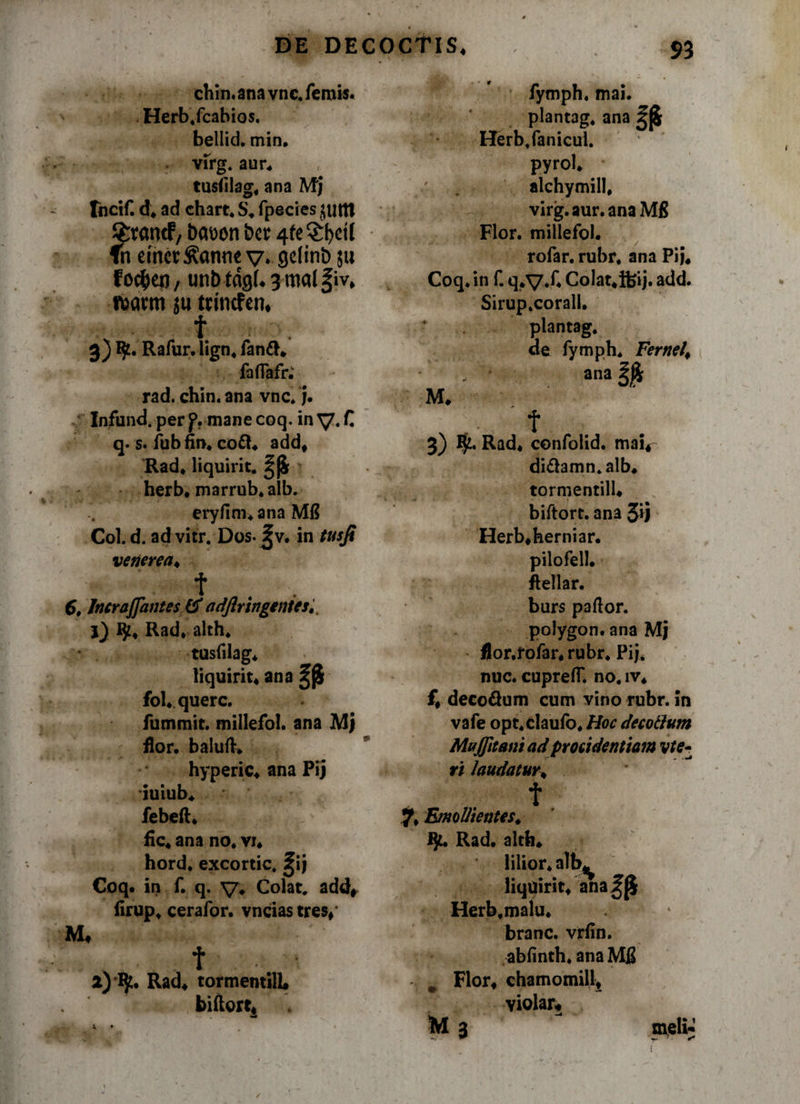 DE DECOCTIS.
93
chin. ana vnc. ſemis.
Herb. ſcabios.
bellid. min.
virg. aur.
tusſilag. ana Mj
Inciſ. d. ad chart. S. ſpecies zum
Tranck, davon der 4te Theil
in einer Kanne ▽. gelind zu
kochen, und tägl. 3 mal ℥iv.
warm zu trincken.
†
3) ℞. Raſur. lign. ſanct.
ſaſſafr.
rad. chin. ana vnc. j.
Infund. per p. mane coq. in ▽. ſ.
q. s. ſub fin. coct. add.
Rad. liquirit. ℥ß
herb. marrub. alb.
eryſim. ana Mß
Col. d. ad vitr. Dos. ℥v. in tusſi
venerea.
†
6. Incraſſantes & adſtringentes.
1) ℞. Rad. alth.
tusſilag.
liquirit. ana ℥ß
fol. querc.
ſummit. millefol. ana Mj
flor. baluſt.
hyperic. ana Pij
iuiub.
ſebeſt.
fic. ana no. vi.
hord. excortic. ℥ij
Coq. in ſ. q. ▽. Colat. add.
ſirup. ceraſor. vncias tres.
M.
†
2) ℞. Rad. tormentill.
biſtort.
ſymph. mai.
plantag. ana ℥ß
Herb. ſanicul.
pyrol.
alchymill.
virg. aur. ana Mß
Flor. millefol.
roſar. rubr. ana Pij.
Coq. in ſ. q. ▽. ſ. Colat. ℔ij. add.
Sirup. corall.
plantag.
de ſymph. Fernel.
ana ℥ß
M.
†
3) ℞. Rad. conſolid. mai.
dictamn. alb.
tormentill.
biſtort. ana ʒij
Herb. herniar.
piloſell.
ſtellar.
burs paſtor.
polygon. ana Mj
flor. roſar. rubr. Pij.
nuc. cupreſſ. no. iv.
f. decoctum cum vino rubr. in
vaſe opt. clauſo. Hoc decoctum
Muſſitani ad procidentiam vte-
ri laudatur.
†
7. Emollientes.
℞. Rad. alth.
lilior. alb.
liquirit. ana ℥ß
Herb. malu.
branc. vrſin.
abſinth. ana Mß
Flor. chamomill.
violar.
M 3
meli-